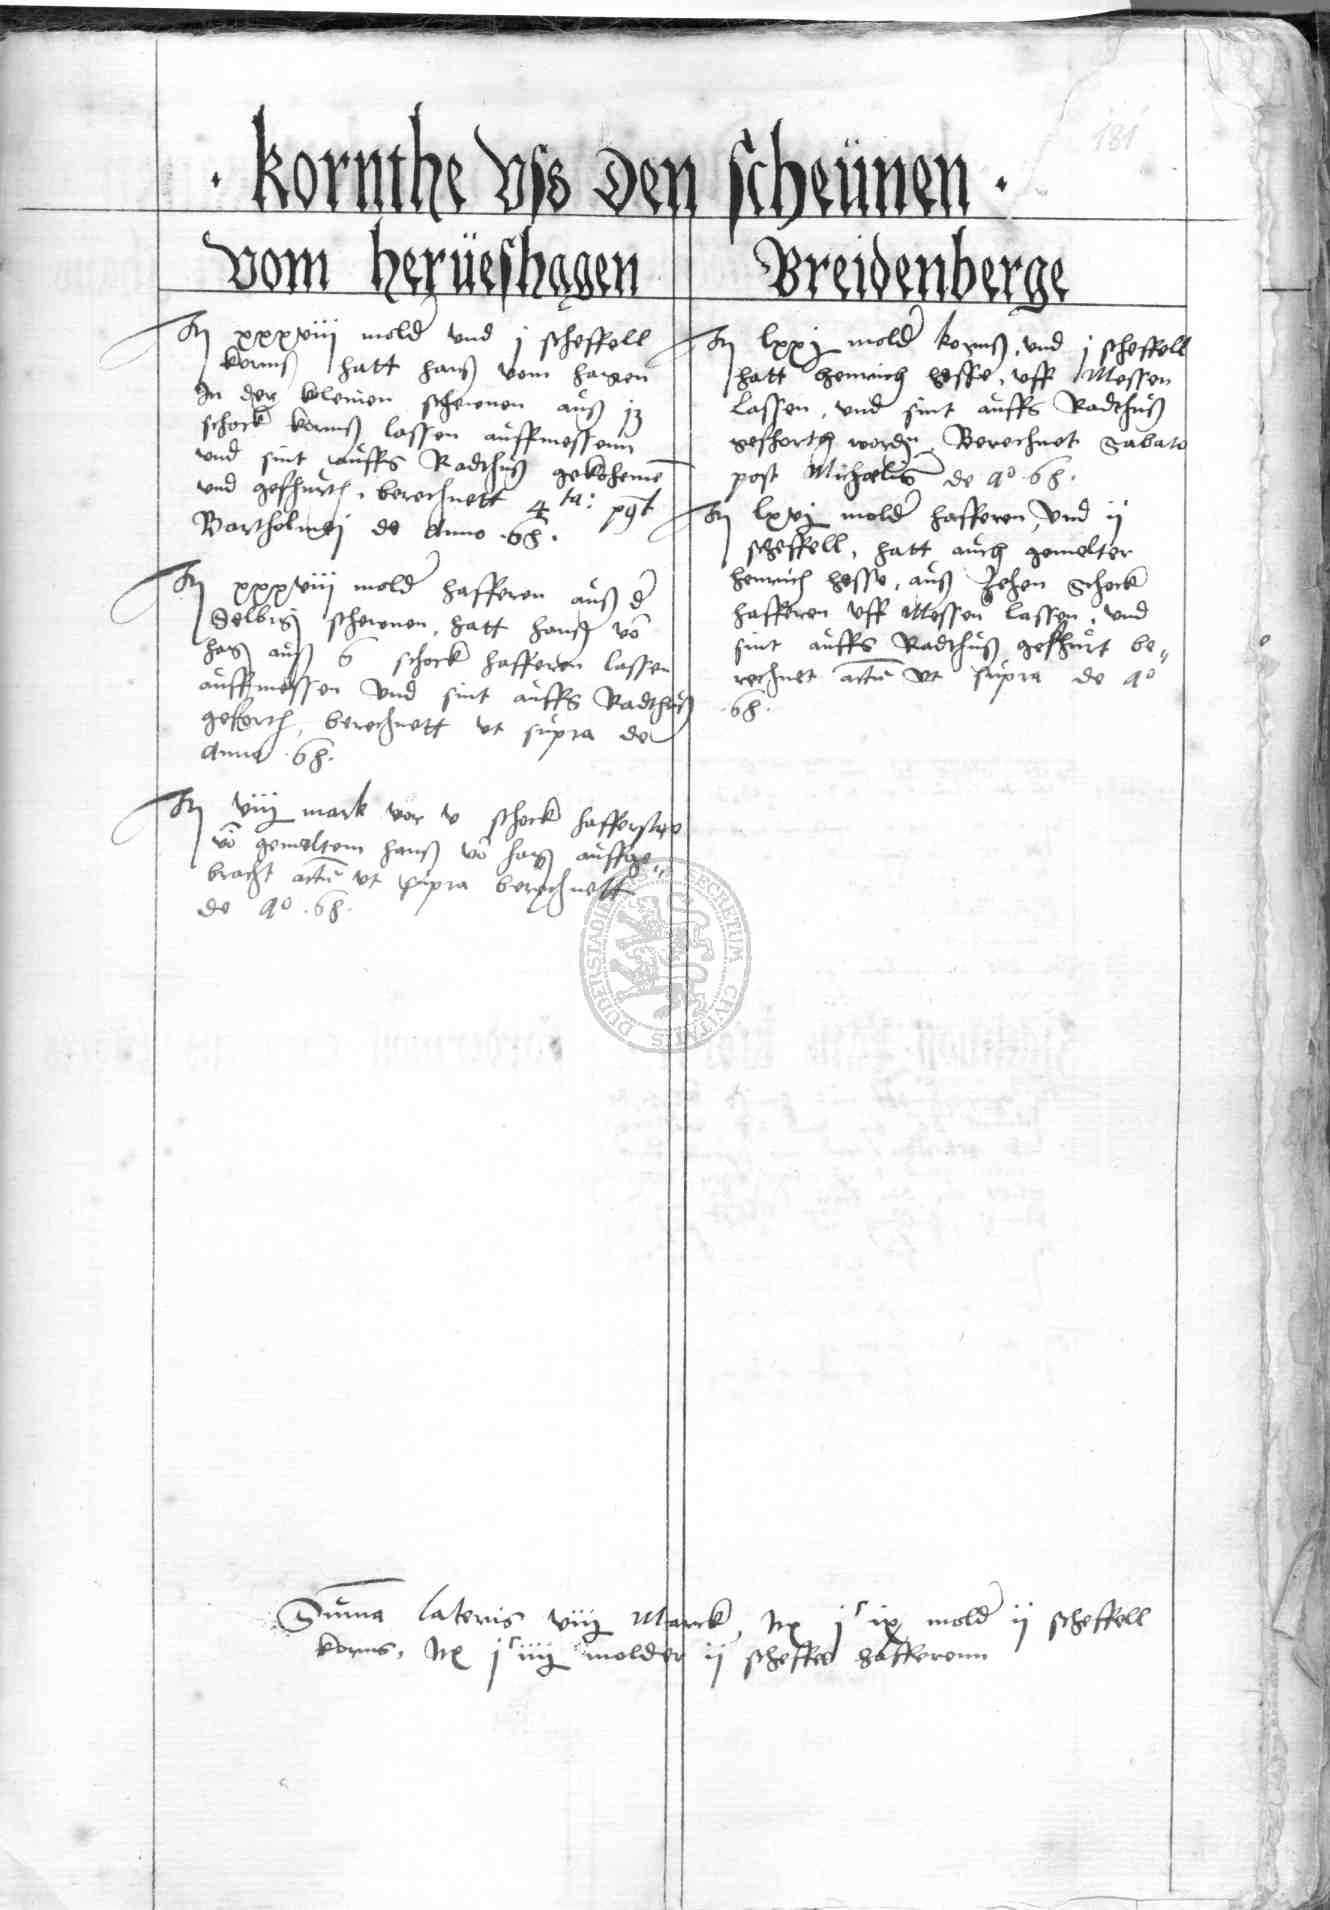 181
· kornthe Vss den scheünen ·
Vom herüeshagen
Jt xxxviij mold vnd j scheffell
korns hatt hans vom hagen
In der kleinen schewnen auß
schock korns lassen auffmessenn
vnd sint auffs Radthuß gekohemē
vnd gefhurth, berechnett 4ta: pꝰt
Bartholmej de Anno .68.
Jt xxxviij mold hafferen auß d
selbig schewnen, hatt hanß vō
hag auß 6 schock hafferen lassen
auffmessen vnd sint auffs Radthuß
geforth, berechnett vt supra de
Anno .68.
Jt viij mark vor v schock hafferstro
vō gemeltem hanß vō hag auffge„
bracht actū vt supra berechnett
de Aº .68.
Breidenberge
Jt lxxj mold korns, vnd j scheffell
hatt henrich hesse, vff Messen
lassen, vnd sint auffs Radthuß
gefhorth wordn, Berechnet Sabato
post Michaelis de Aº .68.
Jt lxvj mold hafferen, vnd ij
scheffell, hatt auch gemelter
henrich hesse, auß Zehen schock
hafferen vff Messen lassen, vnd
sint auffs Radthuß gefhurt be„
rechnet actū vt supra de Aº
.68.
DUDERSTADIENSIS SECRETUM CIVITATIS
Suma lateris viij Marck, Jtx jᶜ ix mold ij scheffell
korns, Jtx jᶜ iiij molder ij scheffel hafferenn